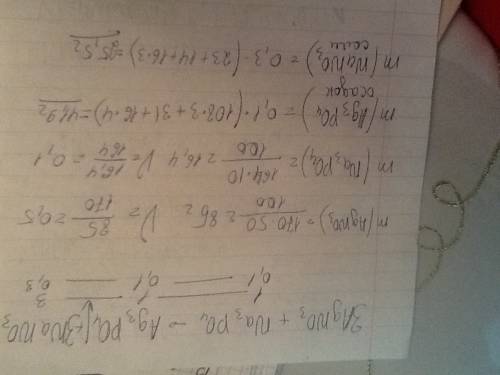 3AgNO₃ + Na₃PO₄ → Ag₃PO₄↓ + 3NaNO₃
1 1 3
0,1 0,1 0,3
m(AgNO₃) = 170·50/100 = 85г ν = 85/170 = 0,5
m(Na₃PO₄) = 164·10/100 = 16,4 ν = 16,4/164 = 0,1
m(Ag₃PO₄) = 0,1·(108·3+31+16·4) = 41,9г
осадок
m(NaNO₃) = 0,3·(23+14+16·3) = 25,5г
соли